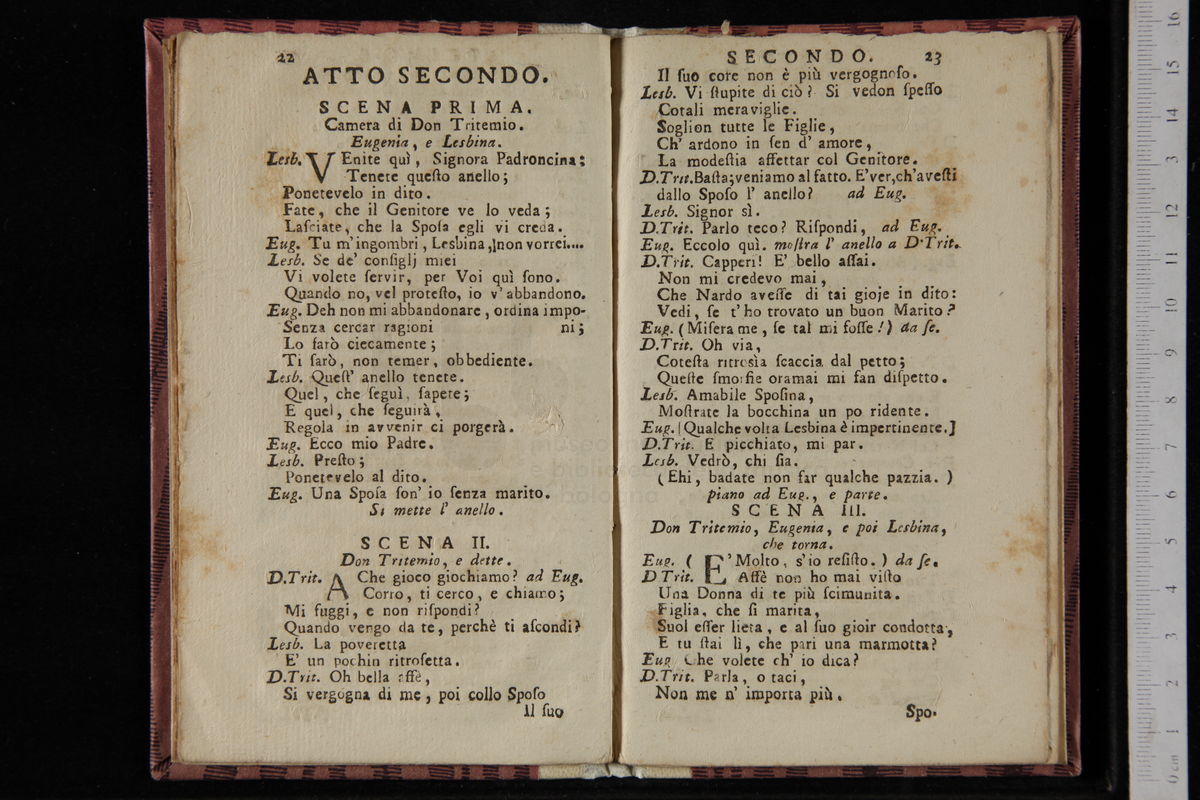 22
ATTO SECONDO.
SCENA PRIMA.
Camera di Don Tritemio.
Eugenia, e Lesbina.
Lesb. VEnite quì, Signora Padroncina;
Tenete queſto anello;
Ponetevelo in dito.
Fate, che il Genitore ve lo veda;
Laſciate, che la Spoſa egli vi creda.
Eug. Tu m'ingombri, Lesbina, non vorrei....
Lesb. Se de' conſiglj miei
Vi volete ſervir, per Voi quì ſono.
Quando no, vel proteſto, io v'abbandono.
Eug. Deh non mi abbandonare, ordina impo-
Senza cercar ragioni ni;
Lo farò ciecamente;
Ti ſarò, non temer, obbediente.
Lesb. Queſt' anello tenete.
Quel, che ſeguì, ſapete;
E quel, che ſeguirà,
Regola in avvenir ci porgerà.
Eug. Ecco mio Padre.
Lesb. Preſto;
Ponetevelo al dito.
Eug. Una Spoſa ſon' io ſenza marito.
Si mette l' anello.
SCENA II.
Don Tritemio, e dette.
D.Trit. A Che gioco giochiamo? ad Eug.
Corro, ti cerco, e chiamo;
Mi fuggi, e non riſpondi?
Quando vengo da te, perchè ti aſcondi?
Lesb. La poveretta
E' un pochin ritroſetta.
D.Trit. Oh bella affè,
Si vergogna di me, poi collo Spoſo
Il ſuo
SECONDO. 23
Il ſuo core non è più vergognoſo.
Lesb. Vi ſtupite di ciò? Si vedon ſpeſſo
Cotali meraviglie.
Soglion tutte le Figlie,
Ch' ardono in ſen d' amore,
La modeſtia affettar col Genitore.
D.Trit. Baſta; veniamo al fatto. E' ver, ch'aveſti
dallo Spoſo l' anello? ad Eug.
Lesb. Signor sì.
D.Trit. Parlo teco? Riſpondi, ad Eug.
Eug. Eccolo quì. moſtra l' anello a D.Trit.
D.Trit. Capperi! E' bello aſſai.
Non mi credevo mai,
Che Nardo aveſſe di tai gioje in dito:
Vedi, ſe t' ho trovato un buon Marito?
Eug. (Miſera me, ſe tal mi foſſe!) da ſe.
D.Trit. Oh via,
Coteſta ritrosìa ſcaccia dal petto;
Queſte ſmorfie oramai mi fan diſpetto.
Lesb. Amabile Spoſina,
Moſtrate la bocchina un po ridente.
Eug. [Qualche volta Lesbina è impertinente.]
D.Trit. E picchiato, mi par.
Lesb. Vedrò, chi ſia.
(Ehi, badate non far qualche pazzia. )
piano ad Eug., e parte.
SCENA III.
Don Tritemio, Eugenia, e poi Lesbina,
che torna.
Eug. ( E' Molto, s'io reſiſto. ) da ſe.
D Trit. Affè non ho mai viſto
Una Donna di te più ſcimunita.
Figlia, che ſi marita,
Suol eſſer lieta, e al ſuo gioir condotta,
E tu ſtai lì, che pari una marmotta?
Eug Che volete ch' io dica?
D.Trit. Parla, o taci,
Non me n' importa più.
Spo-
museo
e biblio
16
15
14
13
12
11
10
9
8
7
6
5
4
3
2
1
0 cm